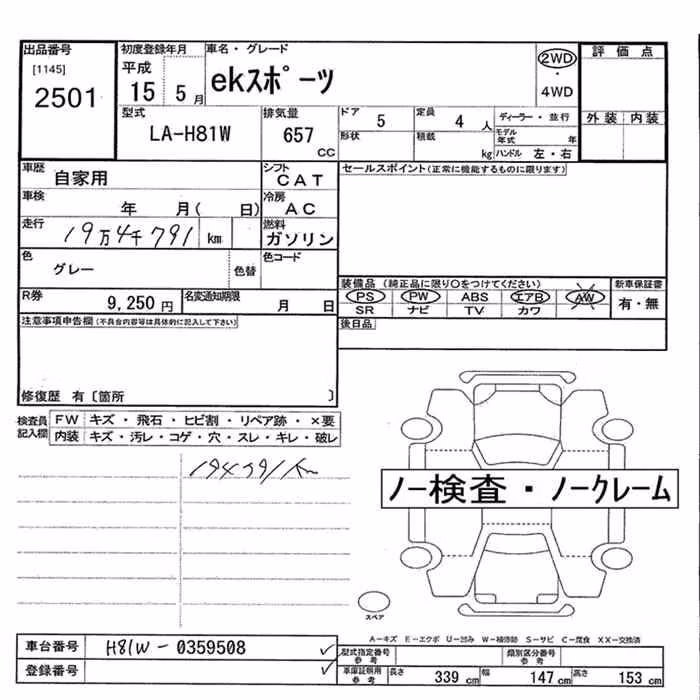 出品番号 初度登録年月 車名・グレード 評価点
[1145] 平成 2WD
2501 15 5月 ekスポーツ ・
4WD
型式 排気量 ドア 定員 ディーラー・並行 外装 内装
LA-H81W 657 5 4人 モデル年式 年
cc 形状 積載 kg ハンドル 左・右
車歴 シフト セールスポイント(正常に機能するものに限ります)
自家用 CAT
車検 冷房
年 月( 日) AC
走行 燃料
19万4千791 km ガソリン
色 色コード
グレー 色替 装備品 (純正品に限り○をつけてください) 新車保証書
R券 名変通知期限 PS PW ABS エアB AW 有・無
9,250円 月 日 SR ナビ TV カワ
注意事項申告欄(不具合内容等は具体的に記入して下さい) 後日品
修復歴 有〔箇所 〕
検査員記入欄 FW キズ・飛石・ヒビ割・リペア跡・×要
内装 キズ・汚レ・コゲ・穴・スレ・キレ・破レ
194791km
ノー検査・ノークレーム
スペア
A-キズ E-エクボ U-凹み W-補修跡 S-サビ C-腐食 XX-交換済
車台番号 H81W-0359508 型式指定番号参考 類別区分番号参考
登録番号 車庫証明用参考 長さ 339cm 幅 147cm 高さ 153cm